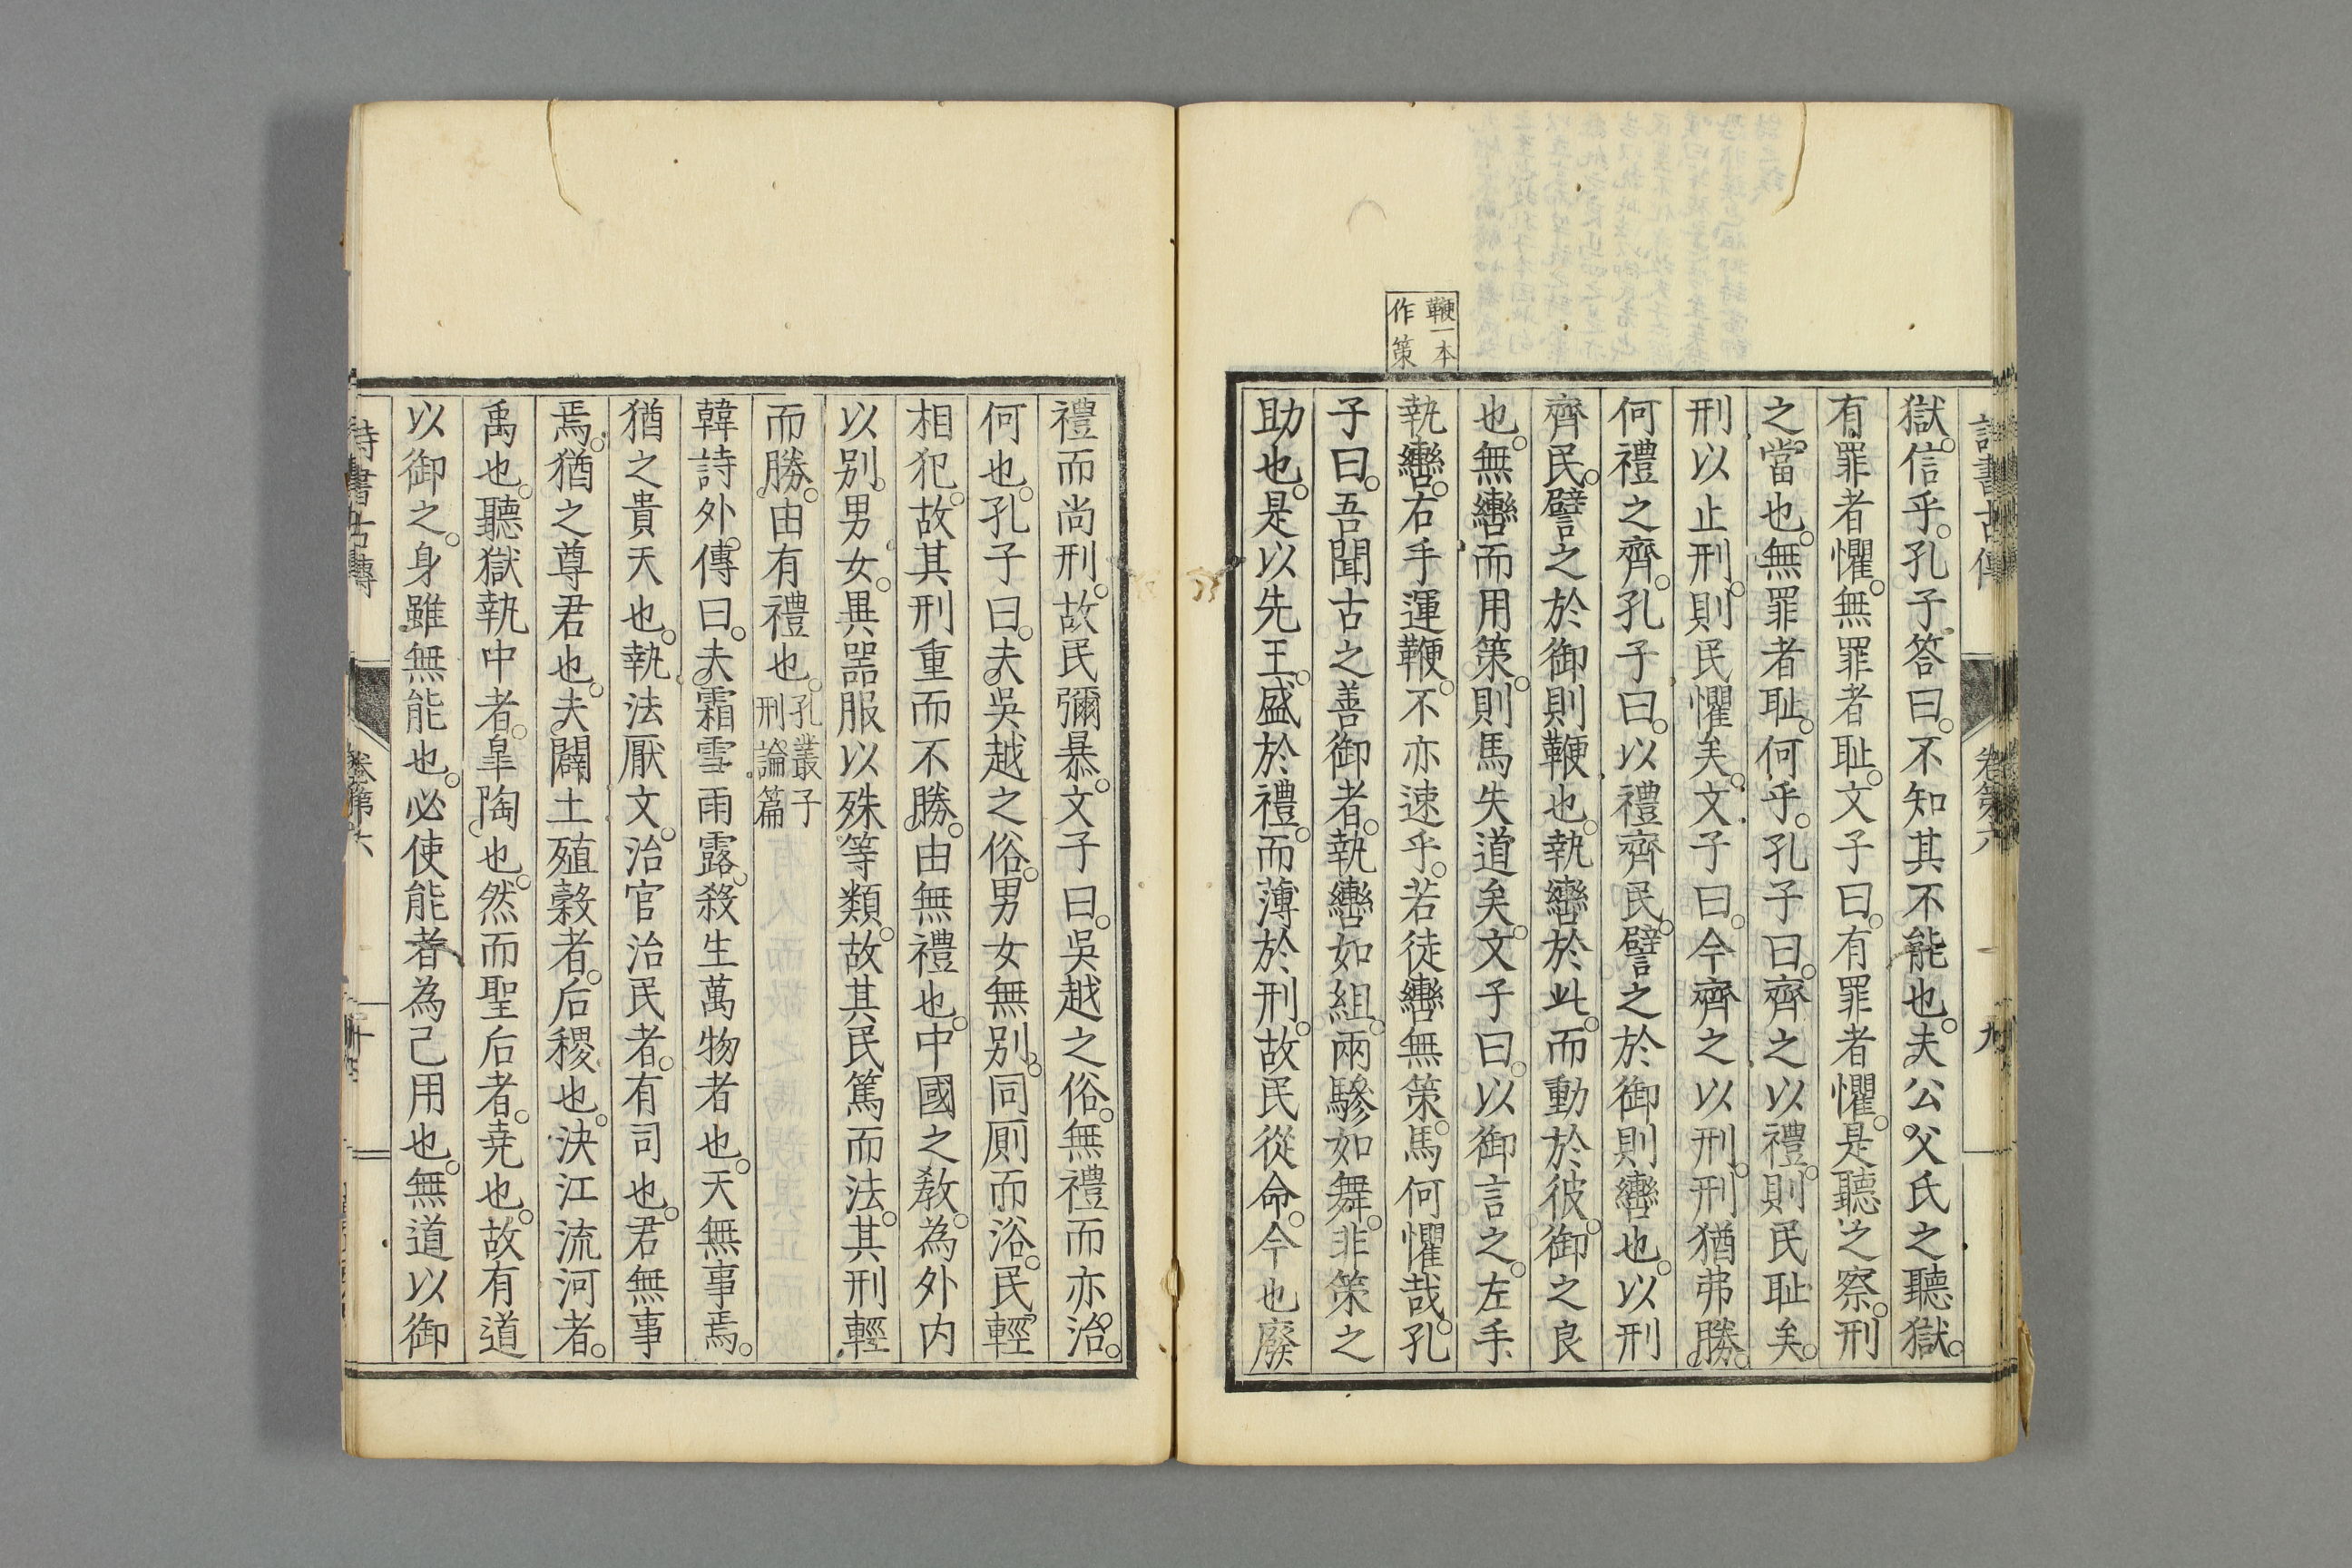 詩書古傳 卷第六 九
獄。信乎。孔子答曰。不知其不能也。夫公父氏之聽獄。
有罪者懼。無罪者耻。文子曰。有罪者懼。是聽之察。刑
之當也。無罪者耻。何乎。孔子曰。齊之以禮。則民耻矣。
刑以止刑。則民懼矣。文子曰。今齊之以刑。刑猶弗勝。
何禮之齊。孔子曰。以禮齊民。譬之於御則轡也。以刑
齊民。譬之於御則鞭也。執轡於此。而動於彼。御之良
也。無轡而用策。則馬失道矣。文子曰。以御言之。左手
執轡。右手運鞭。不亦速乎。若徒轡無策。馬何懼哉。孔
鞭一本
作策
子曰。吾聞古之善御者。執轡如組。兩驂如舞。非策之
助也。是以先王。盛於禮。而薄於刑。故民從命。今也廢
禮而尚刑。故民彌暴。文子曰。吳越之俗。無禮而亦治。
何也。孔子曰。夫吳越之俗。男女無別。同厠而浴。民輕
相犯。故其刑重而不勝。由無禮也。中國之敎。為外内
以別。男女。異器服以殊等類。故其民篤而法。其刑輕
而勝。由有禮也。孔叢子
刑論篇
韓詩外傳曰。夫霜雪雨露。殺生萬物者也。天無事焉。
猶之貴天也。執法厭文。治官治民者。有司也。君無事
焉。猶之尊君也。夫闢土殖穀者。后稷也。決江流河者。
禹也。聽獄執中者。臯陶也。然而聖后者。堯也。故有道
以御之。身雖無能也。必使能者為己用也。無道以御
詩書古傳 卷第六 十